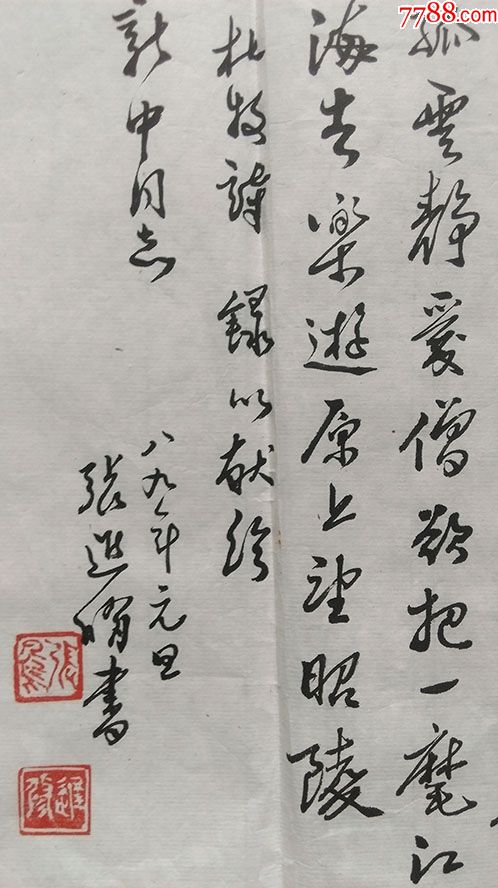 7788.com
孤雲靜愛僧欲把一麾江
海去樂遊原上望昭陵
杜牧詩 錄以献给
新中同志
八九年元旦
張進書